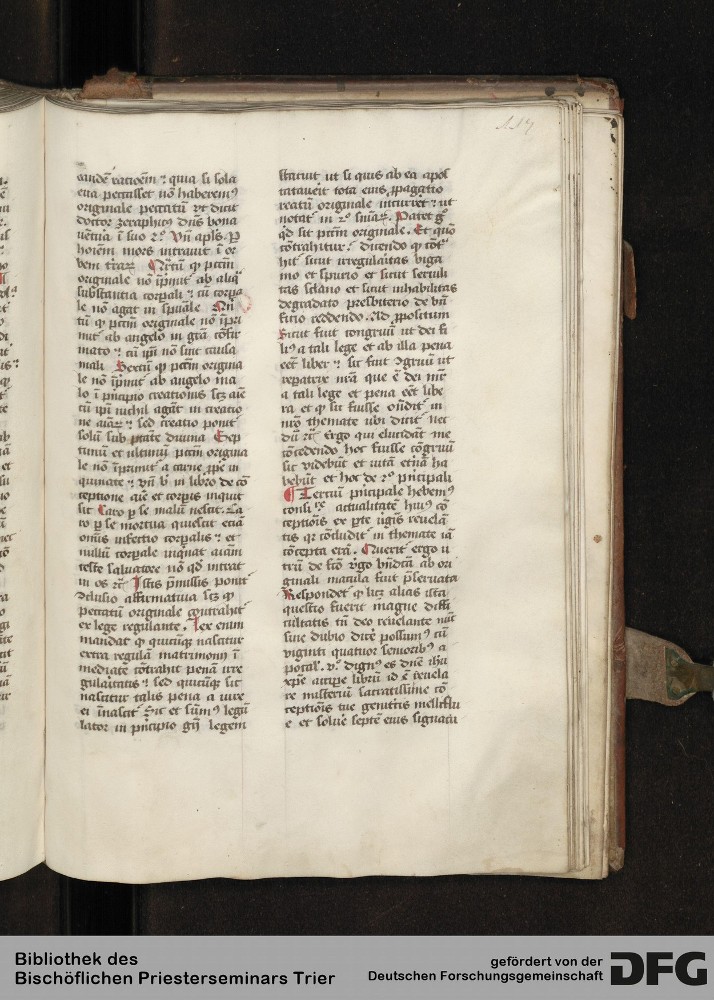 117
eandē rationē ⁊ quia si sola
eua peccasset nō haberem9
originale peccatū vt dicit
doctor zeraphic9 dns bona
uētura ī suo 2º. Vn̄ apls. ꝑ
hoiēm mors intrauit ī or
bem traꝝ Qrtū ꝙ pccm
originale nō īpmit ab aliq̄
substantia corpali ⁊ cū corpa
le nō agat in spūale Qn̄
tū ꝙ pccm originale nō īpri
mit ab angelo in gra cōfir
mato ⁊ cū ip̄i nō sint causa
mali Sextū ꝙ pccm origina
le nō īpmit ab angelo ma
lo ī pncipio creationis scꝫ aīe
cū ip̄i nichil agāt in creatio
ne aīaꝝ ⁊ sed creatio ponit
solū sub ptāte diuina Sep
timū et ultimū pccm origina
le nō īprimit a carne ꝓpe in
quinate ⁊ vn̄ b in libro de cō
ceptione aīe et corpis inquit
sic Caro ꝑ se malū nescit. Ca
ro ꝑ se mortua quiescit eciā
om̄is infectio corpalis ⁊ et
nullū corpale inqinat aīam
teste saluatore nō qd intrat
in os rc̄ Istis pmissis ponit
ꝯclusio affirmatiua scꝫ ꝙ
peccatū originale contrahit
ex lege regulante. Lex enim
mandat ꝙ quicūqꝫ nascitur
extra regulā matrimonij ī
mediate cōtrahit penā irre
gularitatis ⁊ sed quicūqꝫ sic
nascitur talis pena a iure
ei īnascit Sic et sūm9 legis
lator in pncipio gn̄ legem
statuit ut si quis ab ea apos
tataueit tota eius ꝓpagatio
reatū originale incurret ⁊ ut
notat in 2º sniaꝝ. Patet g
qd sit pccm originale. Et quō
cōtrahitur ⁊ dicendo ꝙ cōt
hit sicut irregularitas biga
mo et spurio et sicut seruili
tas sclauo et sicut inhabilitas
degradato presbiterio de bn̄
ficio reddendo. Ad ꝓpositum
Sicut fuit congruū ut dei fi
li9 a tali lege et ab illa pena
eēt liber ⁊ sic fuit ꝯgruū ut
repatrix nr̄a que ē dei mr̄
a tali lege et pena eēt libe
ra et ꝙ sic fuisse on̄dit in
nr̄o themate ubi dicit nec
dū rc̄ Ergo qui elucidāt me
cōcedendo hoc fuisse cōgruū
sic videbūt et uitā et̄nā ha
bebūt et hoc de 2º pncipali
Terciū pncipale hēbem9
consi actualitatē hui9 cō
ceptiōis ex pte ūginis reuelā
tis qr cōcludit in themate iā
cōcepta erā. Querit ergo u
trū de fcō v̄go bn̄dcā ab ori
ginali macula fuit pseruata
Respondet ꝙ licꝫ alias ista
questio fuerit magne diffi
cultatis tn̄ deo reuelante nūc
sine dubio dicē possum9 cū
viginti quatuor seniorib9 a
pocal. vº dign9 es dn̄e ihu
xp̄e accipe librū id ē reuela
re misteriū sacratissime cō
ceptiōis tue genitricis melliflu
e et solue septē eius signacu
Bibliothek des
Bischöflichen Priesterseminars Trier
gefördert von der
Deutschen Forschungsgemeinschaft
DFG